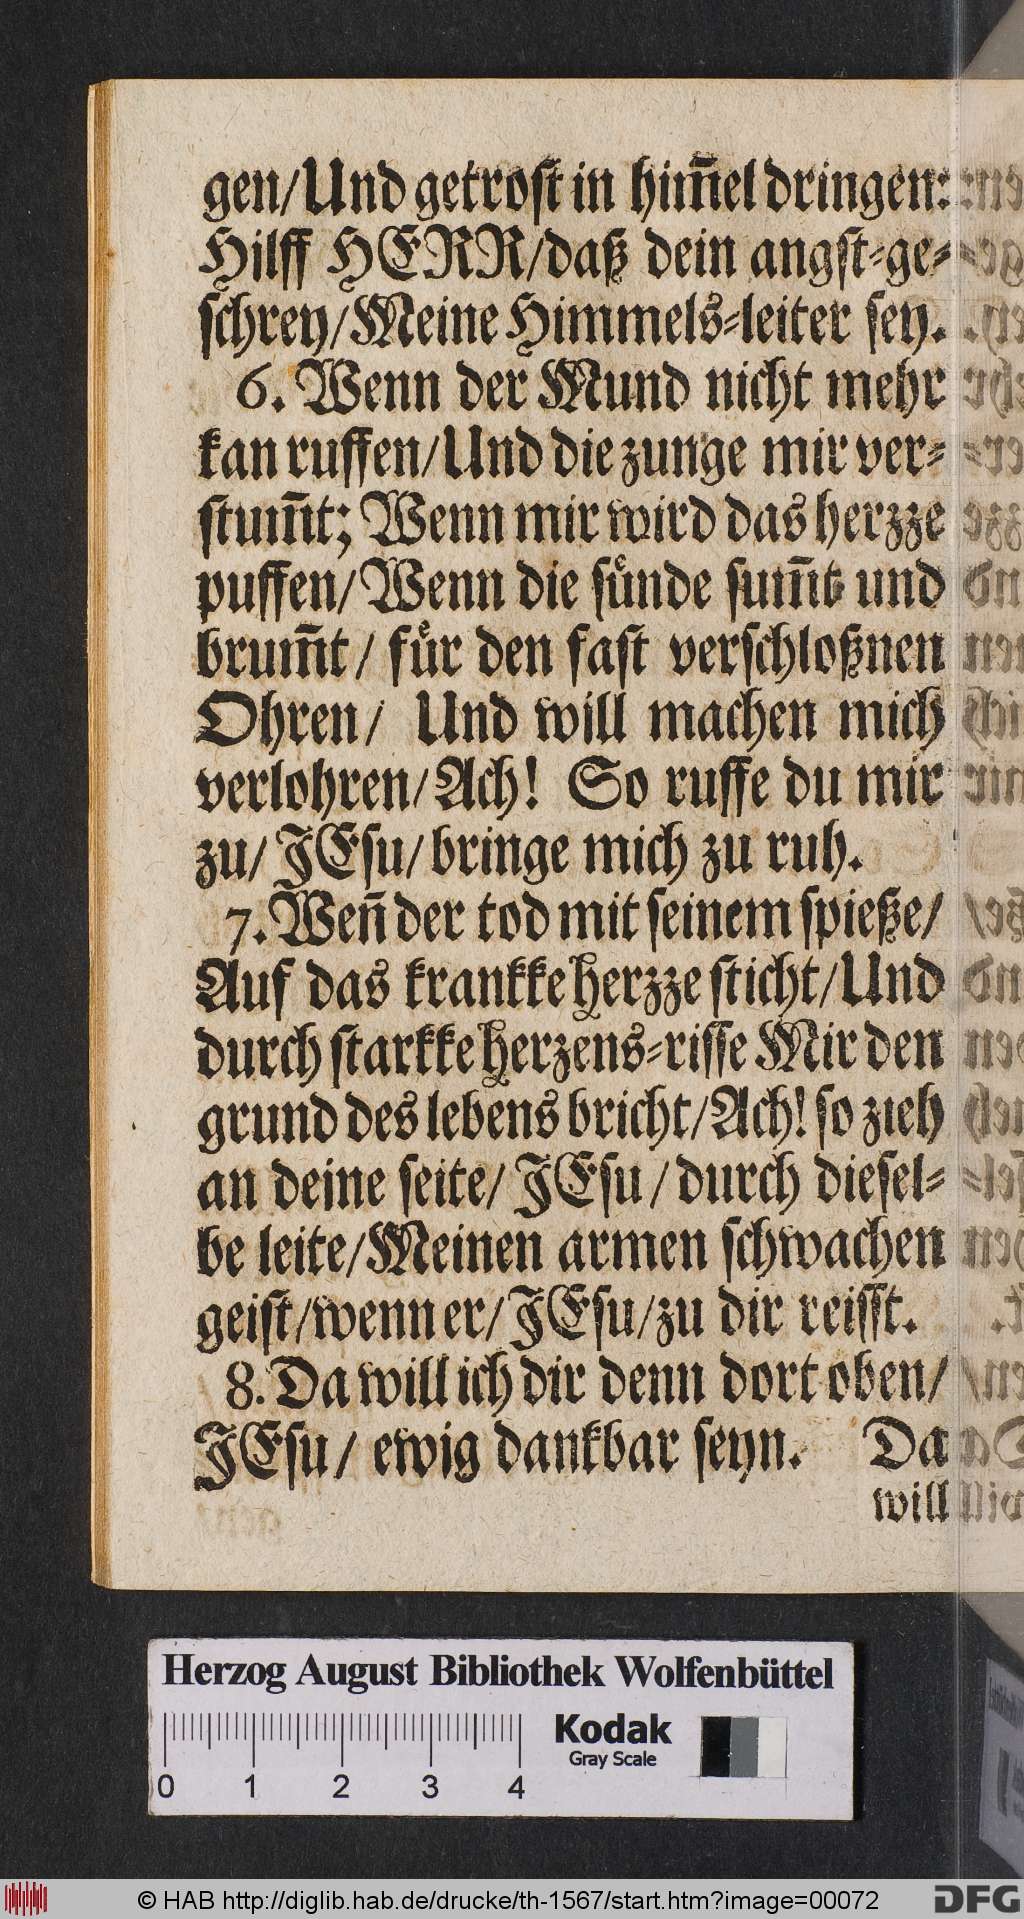 gen/Und getrost in him̄el dringen:
Hilff HERR/daß dein angst-ge-
schrey/Meine Himmels-leiter sey.
6. Wenn der Mund nicht mehr
kan ruffen/Und die zunge mir ver-
stum̄t; Wenn mir wird das herzze
puffen/Wenn die suͤnde sum̄t und
brum̄t/ fuͤr den fast verschloßnen
Ohren/ Und will machen mich
verlohren/Ach! So ruffe du mir
zu/ JEsu/ bringe mich zu ruh.
7. Weñ der tod mit seinem spieße/
Auf das krankke herzze sticht/Und
durch starkke herzens-risse Mir den
grund des lebens bricht/Ach! so zieh
an deine seite/ JEsu/durch diesel-
be leite/Meinen armen schwachen
geist/wenn er/JEsu/zu dir reisst.
8. Da will ich dir denn dort oben/
JEsu/ ewig dankbar seyn. Da
will
Herzog August Bibliothek Wolfenbüttel
Kodak
Gray Scale
0 1 2 3 4
© HAB http://diglib.hab.de/drucke/th-1567/start.htm?image=00072
DFG